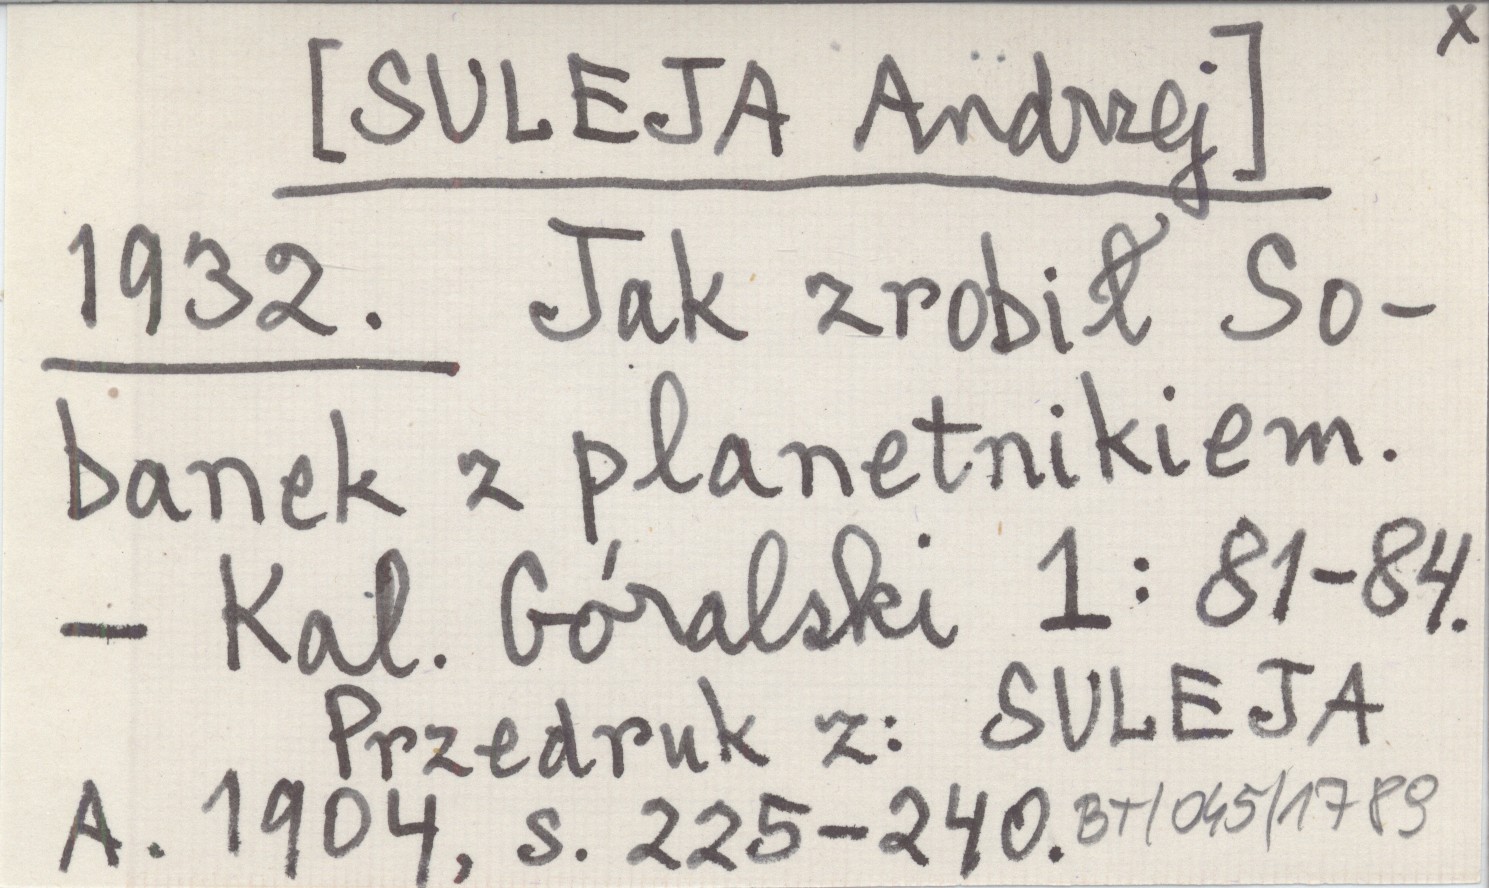 x
[SULEJA Andrzej]
1932. Jak zrobił So-
banek z planetnikiem.
- Kal. Góralski 1: 81-84.
Przedruk z: SULEJA
A. 1904, s. 225-240. BT/045/1789